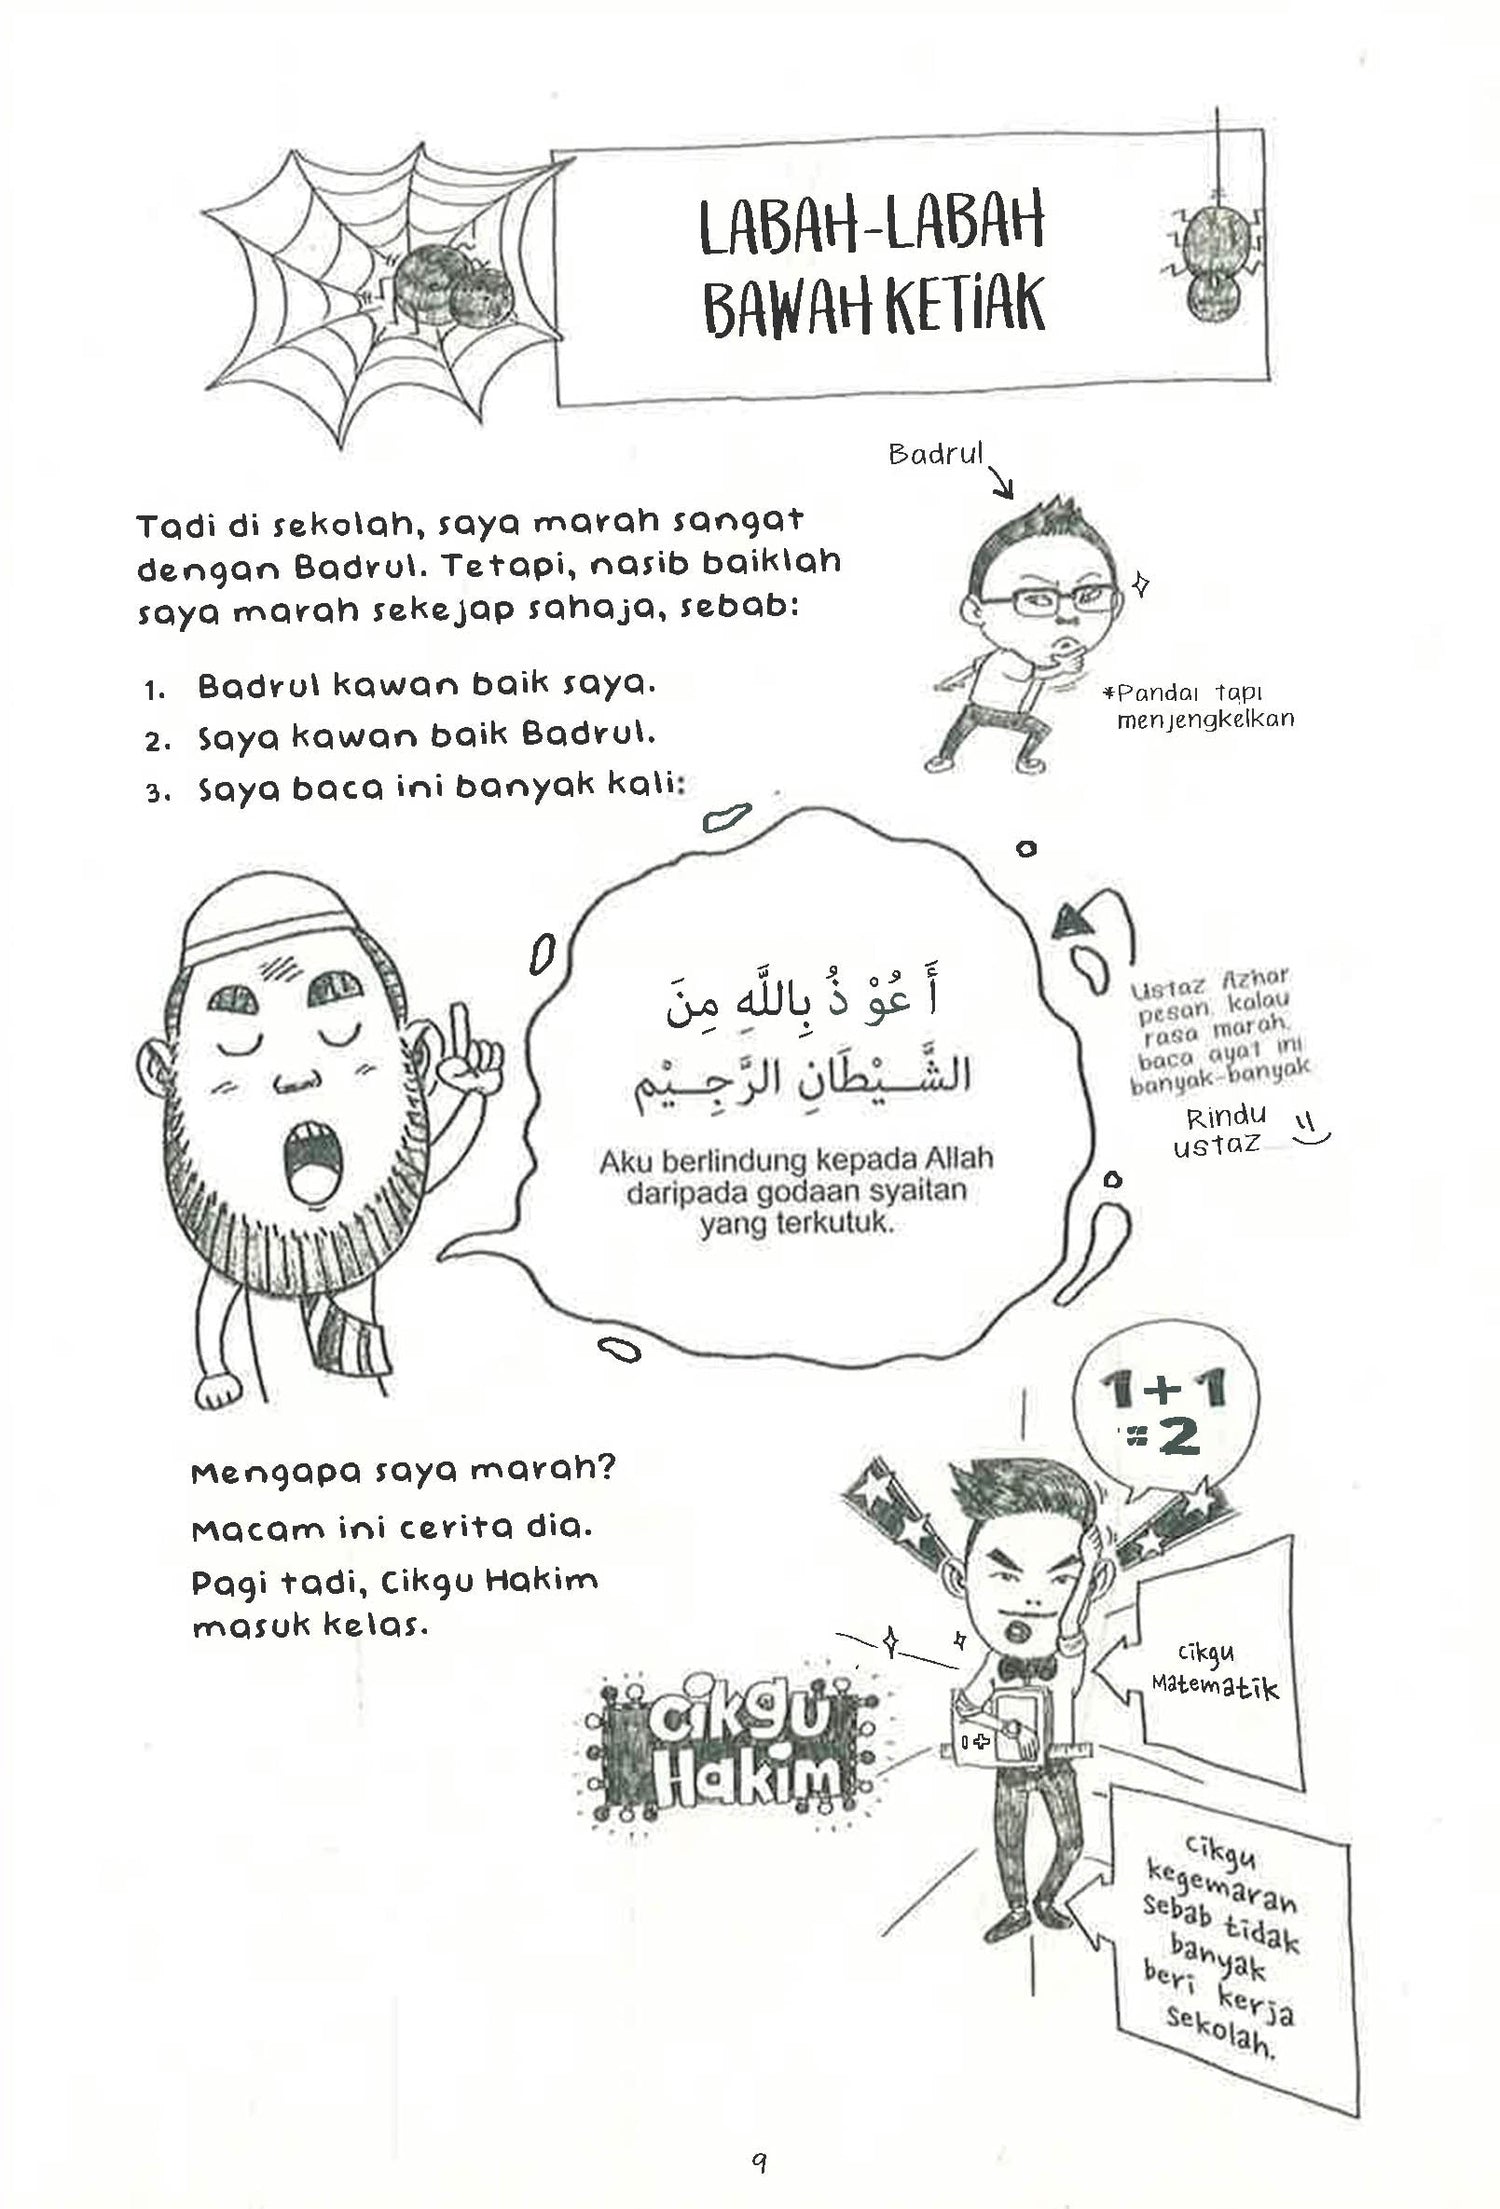 LABAH-LABAH
BAWAH KETiAK
Badrul
Tadi di sekolah, saya marah sangat
dengan Badrul. Tetapi, nasib baiklah
saya marah sekejap sahaja, sebab:
*Pandai tapi
menjengkelkan
1. Badrul kawan baik saya.
2. Saya kawan baik Badrul.
3. Saya baca ini banyak kali:
أَعُوْذُ بِاللَّهِ مِنَ
الشَّيْطَانِ الرَّجِيْمِ
Aku berlindung kepada Allah
daripada godaan syaitan
yang terkutuk.
Ustaz Azhar
pesan, kalau
rasa marah,
baca ayat ini
banyak-banyak
Rindu
ustaz
1+1
=2
Mengapa saya marah?
Macam ini cerita dia.
Pagi tadi, Cikgu Hakim
masuk kelas.
cikgu
Matematik
cikgu
Hakim
cikgu
kegemaran
sebab tidak
banyak
beri kerja
sekolah.
9